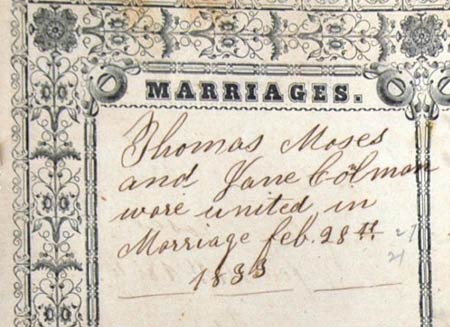 MARRIAGES.
Thomas Moses
and Jane Colman
ware united in
Marriage feb. 28 tt
1833
27
21